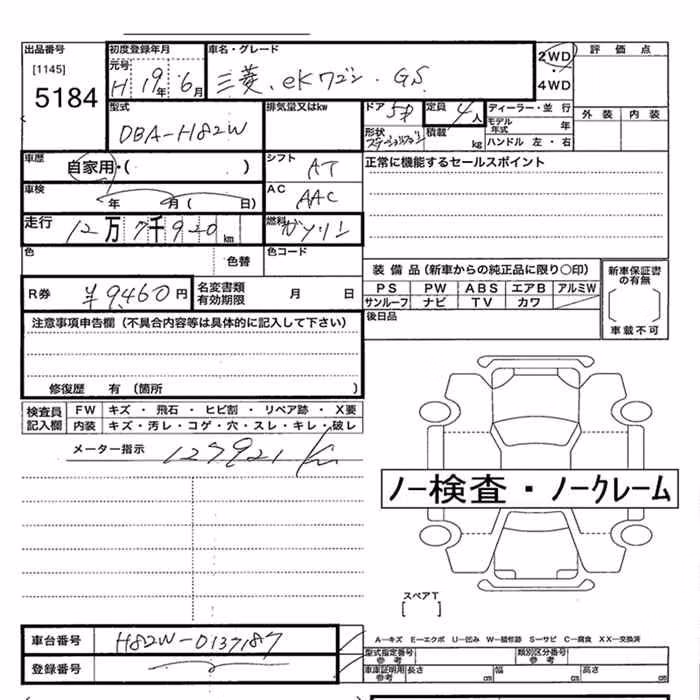 出品番号 初度登録年月 車名・グレード 2WD 評価点
[1145] 元号 H 19年 6月 三菱. eKワゴン. GS ・
5184 4WD
型式 排気量又はkw ドア 5ド 定員 4人 ディーラー・並 行 外装 内装
DBA-H82W モデル年式 年
形状 ステーションワゴン 積載 kg ハンドル 左・右
車歴 自家用・( ) シフト AT 正常に機能するセールスポイント
車検 年 月( 日) AC AAC
走行 12万7千920km 燃料 ガソリン
色 色替 色コード
装備品(新車からの純正品に限り○印) 新車保証書の有無
R券 ¥9,460円 名変書類有効期限 月 日 PS PW ABS エアB アルミW
サンルーフ ナビ TV カワ
注意事項申告欄(不具合内容等は具体的に記入して下さい) 後日品 車載不可
修復歴 有(箇所 )
検査員記入欄 FW キズ ・ 飛石 ・ ヒビ割 ・ リペア跡 ・ X要
内装 キズ・汚レ・コゲ・穴・スレ・キレ・破レ
メーター指示 127921 Km
ノー検査・ノークレーム
スペアT
[ ]
車台番号 H82W-0137187 A−キズ E−エクボ U−凹み W−補修跡 S−サビ C−腐食 XX−交換済
型式指定番号参考 類別区分番号参考
登録番号 車庫証明用参考 長さ cm 幅 cm 高さ cm